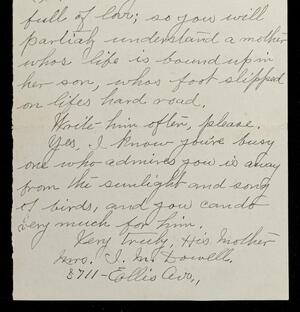 full of love; so you will
partialy understand a mother
whos life is bound up in
her son, whos foot slipped
on lifes hard road.
Write him often, please.
Yes, I know you're busy
one who admires you is away
from the sunlight and song
of birds, and you can do
very much for him.
Very truly, His Mother
Mrs. J. M. Dowell.
3711-Ellis Ave.,